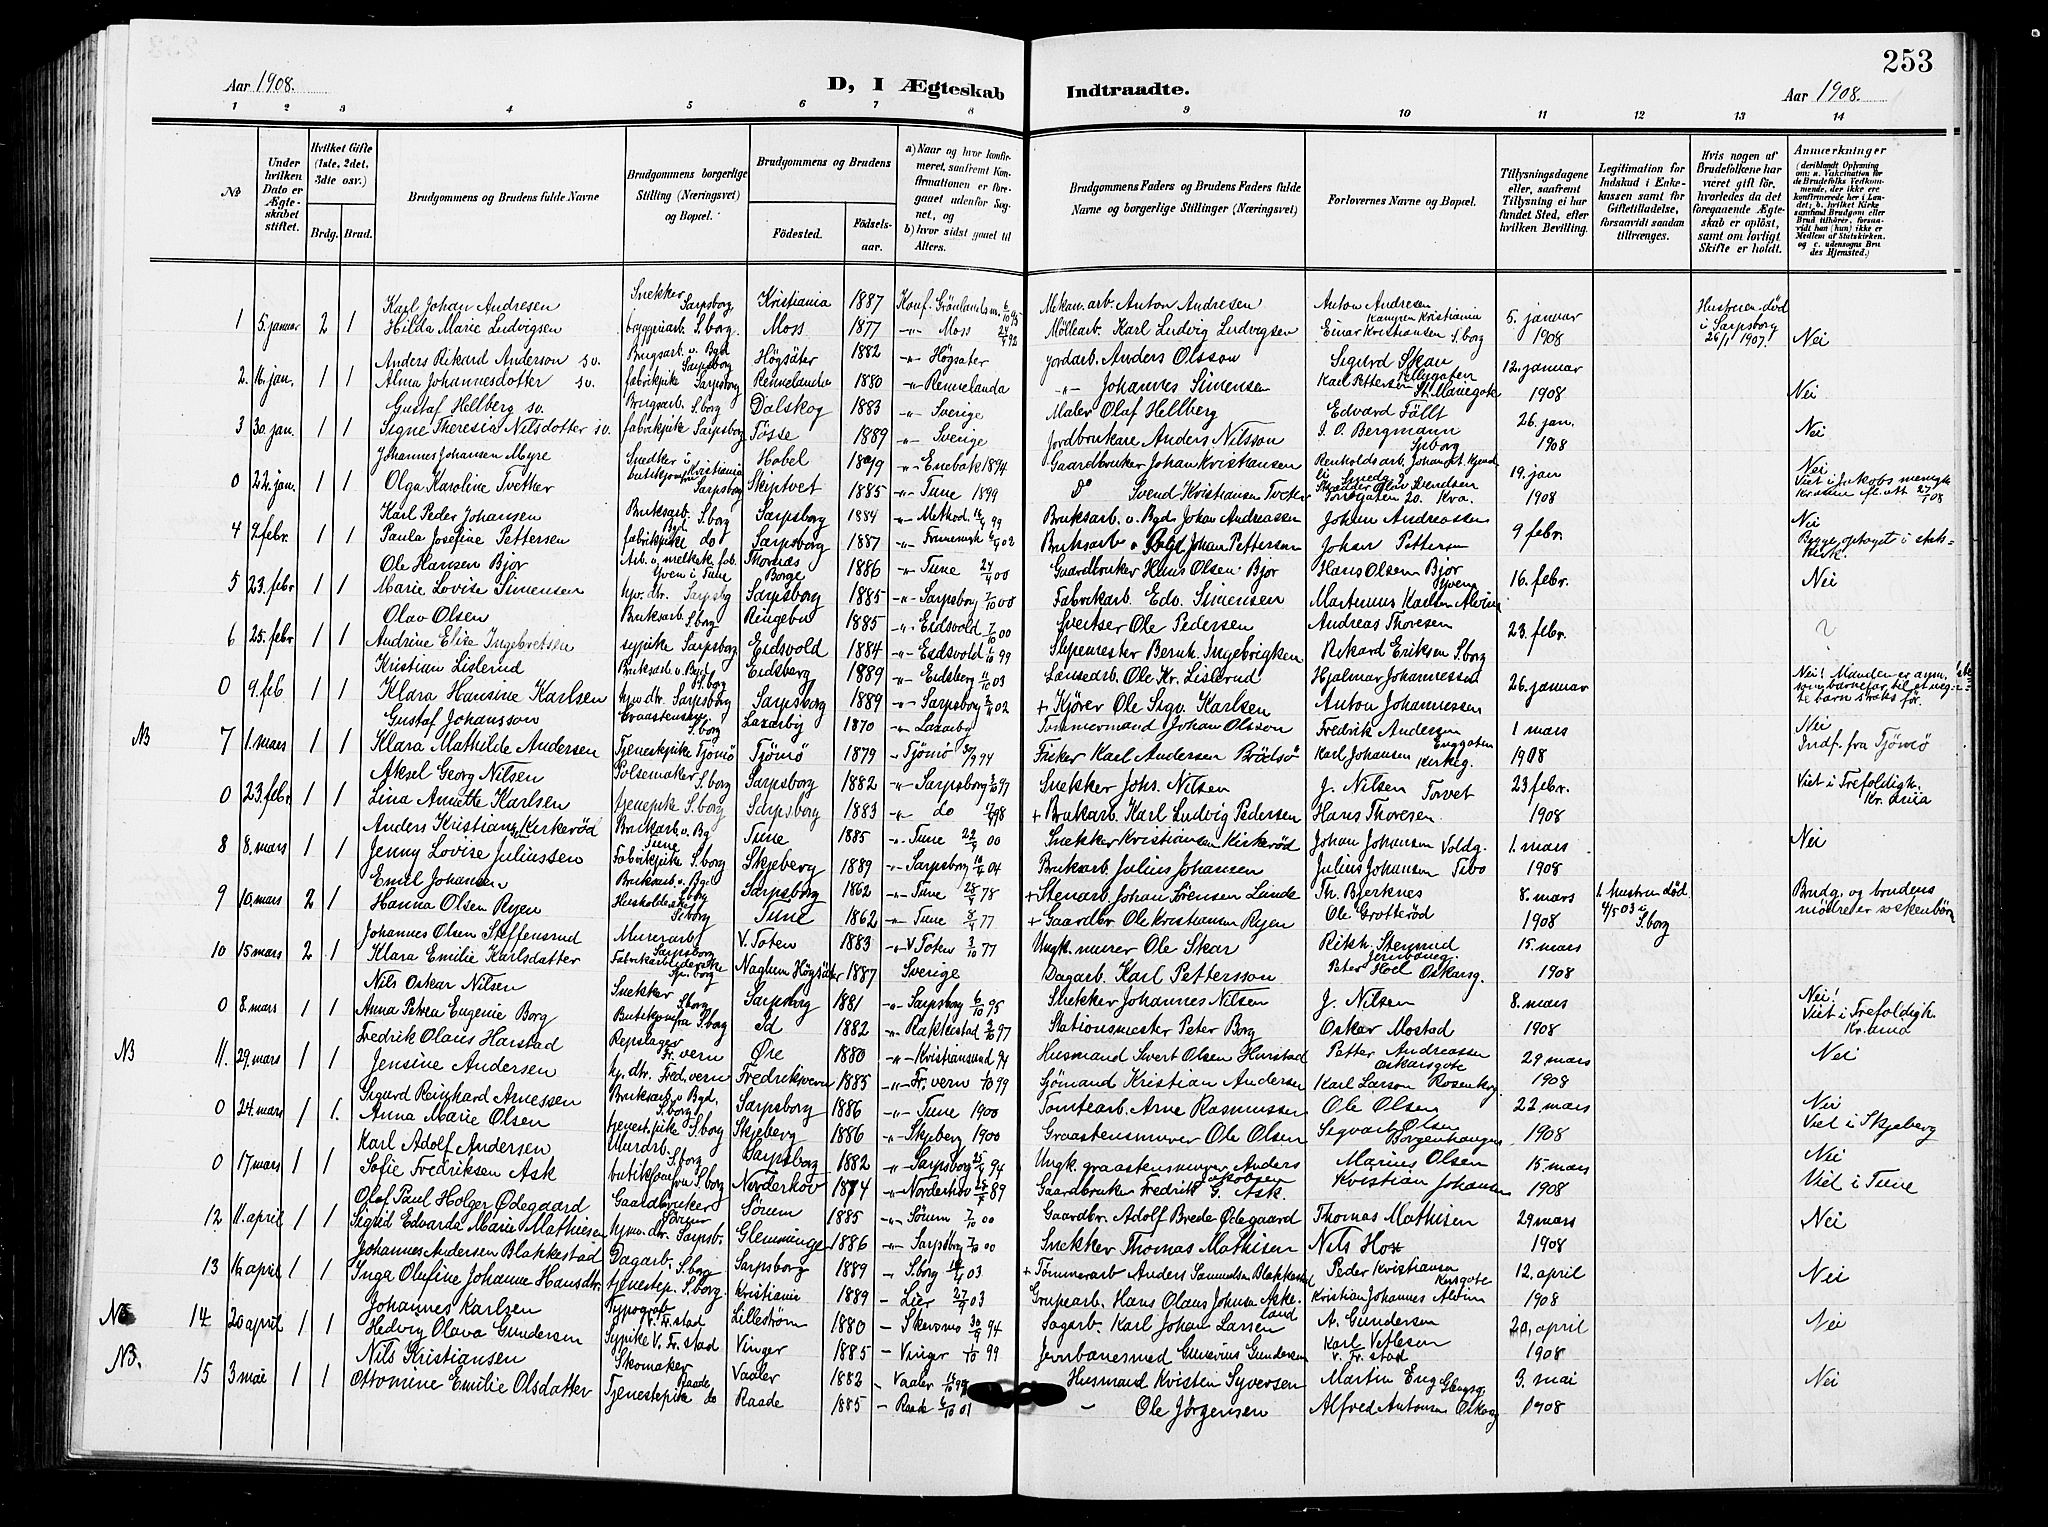 253
Aar 1908. D, I Ægteskab Indtraadte. Aar 1908.
1 2 3 4 5 6 7 8 9 10 11 12 13 14
No
Under hvilken Dato er Ægteskabet stiftet.
Hvilket Gifte (1ste, 2det, 3die osv.)
Brdg. Brud.
Brudgommens og Brudens fulde Navne
Brudgommens borgerlige Stilling (Næringsvei) og Bopæl.
Brudgommens og Brudens
Fødested. Fødselsaar.
a) Naar og hvor konfirmeret, saafremt Konfirmationen er foregaaet udenfor Sognet, og
b) hvor sidst gaaet til Alters.
Brudgommens Faders og Brudens Faders fulde Navne og borgerlige Stillinger (Næringsvei)
Forlovernes Navne og Bopæl.
Tillysningsdagene eller, saafremt Tillysning ei har fundet Sted, efter hvilken Bevilling.
Legitimation for Indskud i Enkekassen samt for Giftetilladelse, forsaavidt saadan tiltrænges.
Hvis nogen af Brudefolkene har været gift før, hvorledes da det foregaaende Ægteskab er opløst, samt om lovligt Skifte er holdt.
Anmærkninger (deriblandt Oplysning om: a. Vakcination for de Brudefolks Vedkommende, der ikke ere konfirmerede her i Landet; b. hvilket Kirkesamfund Brudgom eller Brud tilhører, forsaavidt han (hun) ikke er Medlem af Statskirken. og c. udensogns Brudes Hjemsted.)
Karl Johan Andresen Snekker Sarpsborg Kristiania 1887 Konf. Grønlands m. Mekan.arb. Anton Andresen Anton Andresen Kampen Kristiania
1 5. januar 2 1 Hilda Marie Ludvigsen bryggeriarb. S.borg. Moss 1877 -"- Moss Møllearb. Karl Ludvig Ludvigsen Einar Kristiansen S.borg 5. januar 1908 Hustruen død i Sarpsborg 26/1 1907. Nei
Anders Rikard Anderson sv. Brugsarb. v. Bgd Sarpsborg Högsäter 1882 -"- Högsater jordarb. Anders Olsson Sigurd Skau
2. 16. jan. 1 1 Alma Johannesdotter sv. fabrikpike Sarpsborg Rennelanda 1880 -"- Rennelanda -"- Johannes Simensen Karl Pettersen St. Mariegate 12. januar 1908 Nei
Gustaf Hellberg sv. Brugsarb. S.borg Dalskog 1883 -"- Sverige Maler Olaf Hellberg Edvard Fällt
3 30. jan. 1 1 Signe Theresia Nilsdotter sv. fabrikpike Sarpsborg Tösse 1889 -"- Sverige Jordbrukare Anders Nilsson J. O. Bergmann 26. jan. 1908 Nei
Johannes Johansen Myre Snedker i Kristiania Hobel -"- Enebak 1894 Gaardbruker Johan Kristiansen
0 22. jan. 1 1 Olga Karoline Tvether Sarpsborg Skiptvet 1885 -"- Tune 1899 Do Svend Kristiansen Tveter 19. jan 1908 Nei Viet i Jakobs menigh.
Karl Peder Johansen Bruksarb. S.borg Sarpsborg 1884 -"- Method Bruksarb. v. Bgd. Johan Andreassen Johan Andreassen
4 9 febr. 1 1 Paula Josefine Pettersen fabrikpike do Sarpsborg 1887 Bruksarb v Bgd. Johan Pettersen Johan Pettersen 9 febr. Nei Begge optaget i statskirk.
Ole Hansen Bjor Thornæs Borge 1886 -"- Tune 24/9 00 Gaardbruker Hans Olsen Bjor Hans Olsen Bjor
5 23. febr 1 1 Marie Lovise Simensen hjv. dtr. Sarpsbg Sarpsborg 1885 -"- Sarpsborg 7/10 00 Fabrikarb. Edv. Simensen Martinus Karlsen Alvim 16. febr. Nei
Olav Olsen Bruksarb. S.borg Ringebu 1885 -"- Eidsvold 7/10 00 Sveitser Ole Pedersen Andreas Thoresen
6 25. febr 1 1 Andrine Elise Ingebretsen sypike Sarpsborg Eidsvold 1884 -"- Eidsvold 1/10 99 Slipemester Bernh. Ingebrigtsen Rikard Eriksen S.borg 23. febr.
Kristian Lislerud Bruksarb. v. Bgd S.borg Eidsberg 1889 -"- Eidsberg 11/10 03 Lænsearb. Ole Kr. Lislerud Hjalmar Johannessen
0 9. feb 1 1 Klara Hansine Karlsen hjv. dtr. Sarpsborg Sarpsborg 1889 -"- Sarpsborg + Kjører Ole Sigv. Karlsen Anton Johannessen 26. januar
Gustaf Johansson S.borg Laxarby 1870 -"- Laxarby Tømmermand Johan Olsson Fredrik Andersen Enggaten
NB 7 1. mars 1 1 Klara Mathilde Andersen Tjenestpike Tjömö Tjömö 1879 -"- Tjömö 30/9 94 Fisker Karl Andersen Brödsö Karl Johansen Kirkeg. 1 mars 1908 Nei Indf. fra Tjömö
Aksel Georg Nilsen Pølsemaker S.borg Sarpsborg 1882 -"- Sarpsborg 3/10 97 Snekker Johs. Nilsen J. Nilsen Torvet
0 23. febr. 1 1 Lina Annette Karlsen tjenepike S.borg Sarpsborg 1883 -"- do + Bruksarb. Karl Ludvig Pedersen Hans Thoresen 23 febr. 1908 Viet i Trefoldigh. Kr.ania
Anders Kristiansen Kirkerød Bruksarb. v. Bg. Tune Tune 1885 -"- Tune 00 Snekker Kristiansen Kirkerød Johan Johansen Voldg.
8 8. mars 1 1 Jenny Lovise Juliussen Fabrikpike S.borg Skjeberg 1889 -"- Sarpsborg 04 Bruksarb. Julius Johansen Julius Johansen Tibo 1. mars 1908 Nei
Emil Johansen Bruksarb. v. Bg. S.borg Sarpsborg 1862 -"- Tune 78 + Stenarb. Johan Sørensen Lunde Th. Bjerknes
9 10. mars 2 1 Hanna Olsen Ryen S.borg Tune 1862 -"- Tune 77 + Gaardbr. Ole Kristiansen Ryen Ole Grotterød 8. mars 1908 1. hustru død 4/5 03 i S.borg Brudg. og brudens mødre er søskenbørn
Johannes Olsen Steffensrud Murerarb. Sarpsborg V. Toten 1883 -"- V. Toten 77 Ungk. murer Ole Skar
10 15 mars 2 1 Klara Emilie Karlsdatter Naglum Högsäter 1887 Sverige Dagarb. Karl Pettersson Peter Hoel Oskarsg. 15. mars 1908
Nils Oskar Nilsen Snekker S.borg Sarpsborg 1881 -"- Sarpsborg 6/10 95 Snekker Johannes Nilsen J. Nilsen
0 8. mars 1 1 Anna Petrea Eugenie Borg S.borg Id 1882 -"- Rakkestad 97 Stationsmester Peter Borg Oskar Mostad 8. mars 1908 Nei! Viet i Trefoldigh. Kr.ania
Fredrik Olaus Harstad Repslager Fr.vern Øre 1880 -"- Kristiansund 94 Husmand Sivert Olsen Harstad Petter Andreassen Oskarsgate
NB 11. 29. mars 1 1 Jensine Andersen hj. dtr. Fred.vern Fredriksvern 1885 -"- Fr.vern 1/10 99 Sjömand Kristian Andersen Karl Larson Rosenborg 29 mars 1908 Nei
Sigurd Reinhard Arnessen Bruksarb v Bgd. S.borg Sarpsborg 1886 -"- Tune 1900 Tomtearb. Arne Rasmussen Ole Olsen
0 24. mars 1 1. Anna Marie Olsen tjenest.pike S.borg Skjeberg 1886 -"- Skjeberg 1900 Graastensmurer Ole Olsen Sigvart Olsen Borgenhaugen 22. mars 1908 Nei Viet i Skjeberg
Karl Adolf Andersen Murarb. S.borg Sarpsborg 1882 -"- Sarpsborg 94 Ungk. graastensmurer Anders Jakobsen Marius Olsen
0 17 mars 1 1 Sofie Fredriksen Ask S.borg Norderhov 1874 -"- Norderhov 89 Gaardbruker Fredrik G. Ask. Kristian Johansen 15. mars 1908 Nei Viet i Tune
Olaf Paul Holger Ødegaard Gaardbruker Sörum Sörum 1885 -"- Sörum 7/10 00 Gaardbr. Adolf Brede Ødegaard Thomas Mathisen
12 11. april 1 1 Sigrid Edvarda Marie Mathisen hjm. dtr. Sarpsb. Glemminge 1886 -"- Sarpsborg 7/10 00 Snekker Thomas Mathisen 29 mars 1908 Nei
Johannes Andersen Blakkestad Dagarb. S.borg Sarpsborg 1889 -"- S.borg 03 + Tømmerarb Anders Samuelsen Blakkestad Peder Kristiansen
13 16 april 1 1 Inga Olufine Johanne Hansdtr. tjenestep. S.borg. Kristiania 1889 - Lier 27/9 03 Grubearb. Hans Olaus Johnsen Askeland Kristian Johannes Alvim 12. april 1908 Nei
Johannes Karlsen Typograf V. Fr.stad Lilleström 1880 - Skedsmo 94 Sagarb. Karl Johan Larsen A. Gundersen
NB 14 20 april 1 1 Hedvig Olava Gundersen Sypike V. Fr.stad Vinger 1885 - Vinger 1/10 99 Jernbanemed Gundersen Karl Vetleson V. Fr.stad 20. april 1908 Nei
Nils Kristiansen Skomaker Raade Vaaler 1882 - Vaaler Husmand Kristen Syversen Martin Eng
NB. 15 3 mai 1 1 Ottomine Emilie Olsdatter Tjenestepike do Raade 1885 - Raade 6/10 01 - Ole Jørgensen Alfred Antonsen 3. mai 1908 Nei